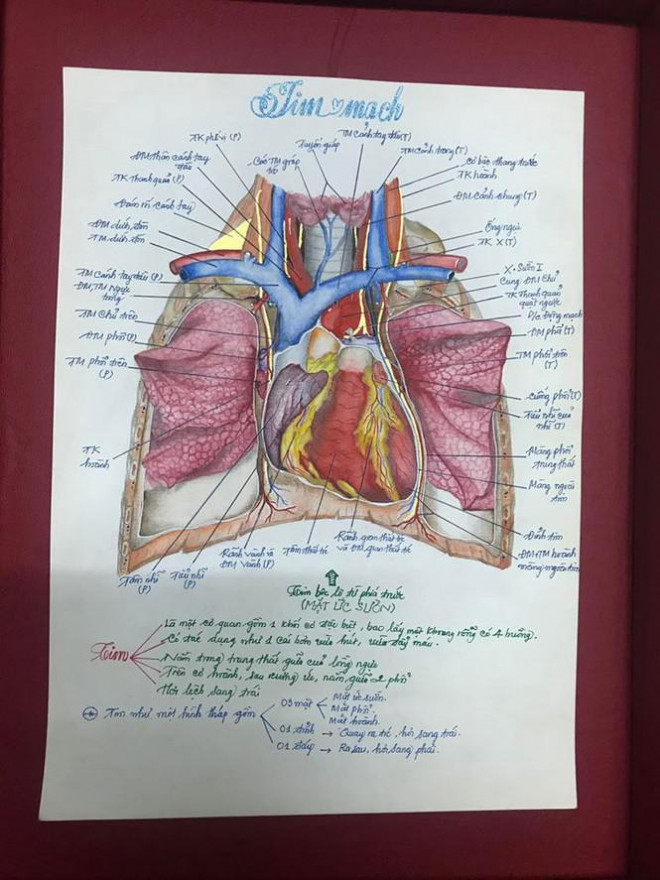 Tim mạch
TK phế vị (P)
ĐM thân cánh tay đầu
TK Thanh quản (P)
Đám rối cánh tay
ĐM dưới đòn
TM dưới đòn
TM cánh tay đầu (P)
ĐM, TM Ngực trong
TM Chủ trên
ĐM phổi (P)
TM phổi trên (P)
TK hoành
Các TM giáp
Tuyến giáp
TM cánh tay đầu (T)
TM cảnh trong (T)
Cơ bậc thang trước
TK hoành
ĐM cảnh chung (T)
Ống ngực
TK X (T)
X. Sườn I
Cung ĐM Chủ
TK Thanh quản quặt ngược
D/c Động mạch
ĐM phổi (T)
TM phổi trên (T)
Cuống phổi (T)
Tiểu nhĩ của nhĩ (T)
Màng phổi trung thất
Màng ngoài tim
Đỉnh tim
ĐM TM hoành màng ngoài tim
Tâm nhĩ (P)
Tiểu nhĩ (P)
Rãnh vành và ĐM vành (P)
Tâm thất
Rãnh gian thất và ĐM gian thất
Tim bộc lộ từ phía trước
(MẶT ỨC SƯỜN)
Tim
Là một cơ quan gồm 1 khối cơ đặc biệt, bao lấy một khoang rỗng có 4 buồng.
Có tác dụng như 1 cái bơm vừa hút, vừa đẩy máu.
Nằm trong trung thất giữa của lồng ngực
Trên cơ hoành, sau xương ức, nằm giữa 2 phổi
Hơi lệch sang trái
Tim như một hình tháp gồm
03 mặt
Mặt ức sườn.
Mặt phổi.
Mặt hoành.
01 đỉnh → Quay ra trc, hơi sang trái.
01 đáy → Ra sau, hơi sang phải.